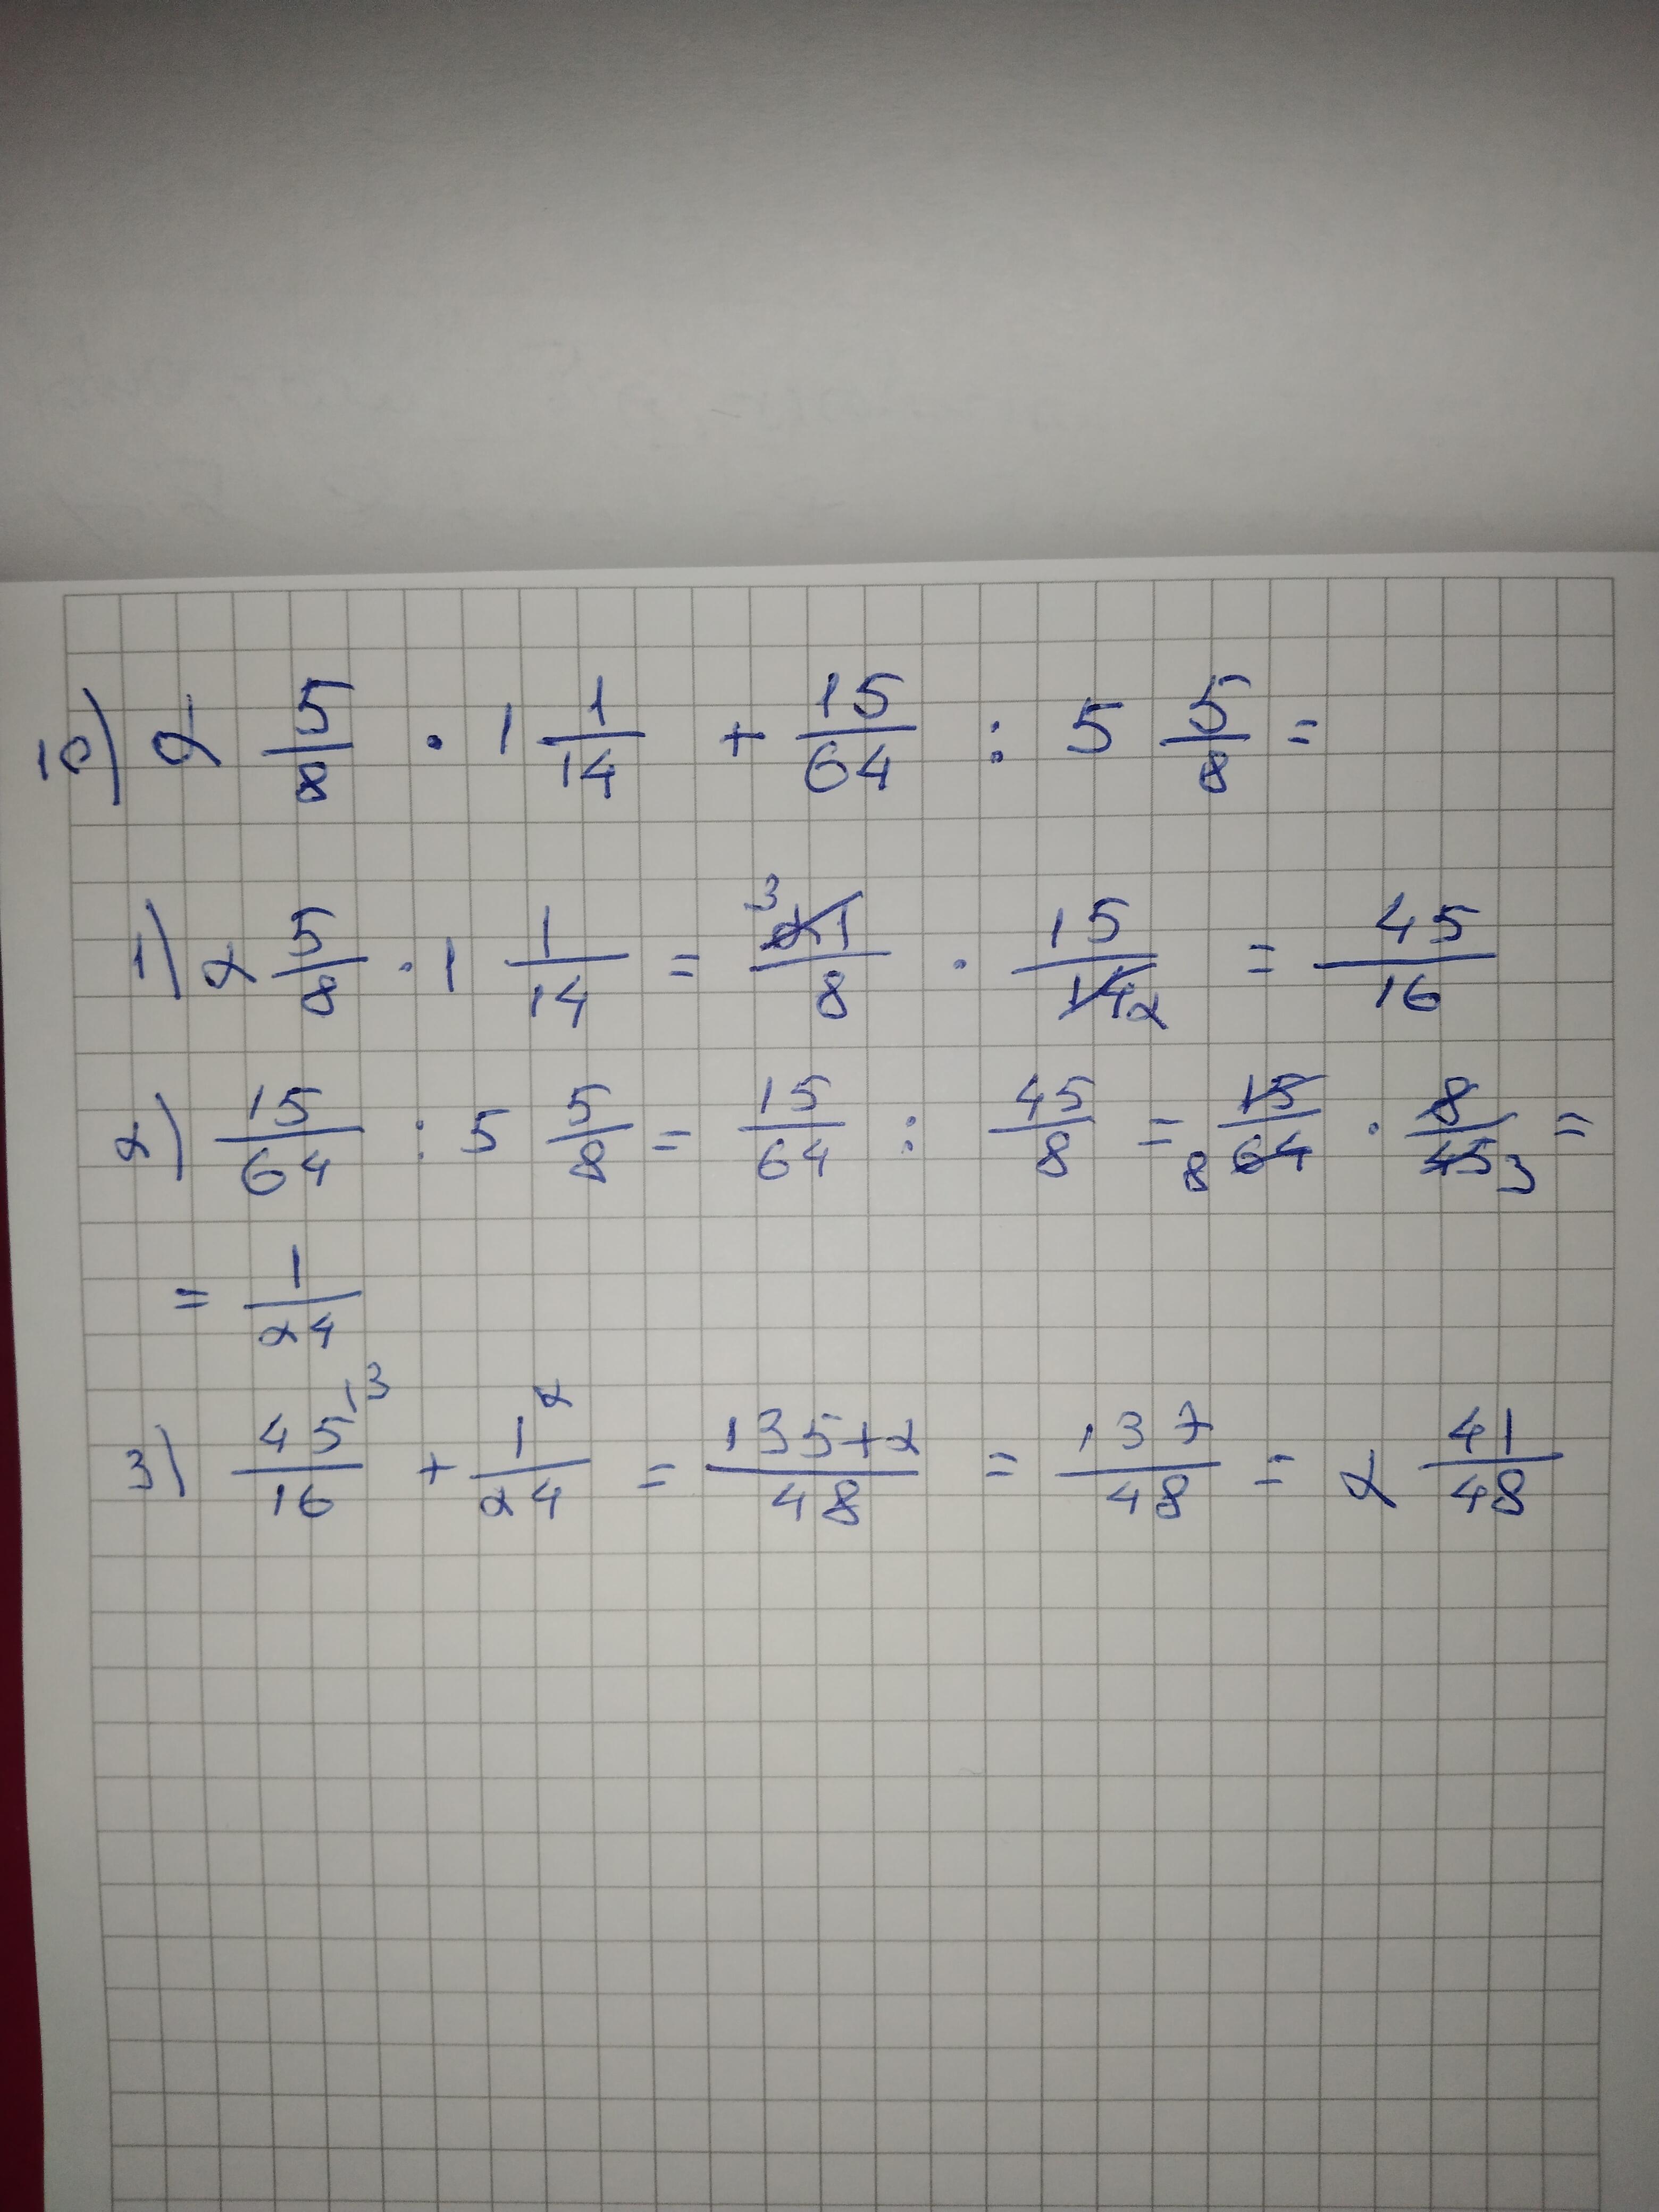 10) 2 5/8 · 1 1/14 + 15/64 : 5 5/8 =
1) 2 5/8 · 1 1/14 = ³21/8 · 15/14 2 = 45/16
2) 15/64 : 5 5/8 = 15/64 : 45/8 = 15/64 8 · 8/45 3 =
= 1/24
3) 45/16 ⁽³ + 1/24 ² = 135+2/48 = 137/48 = 2 41/48